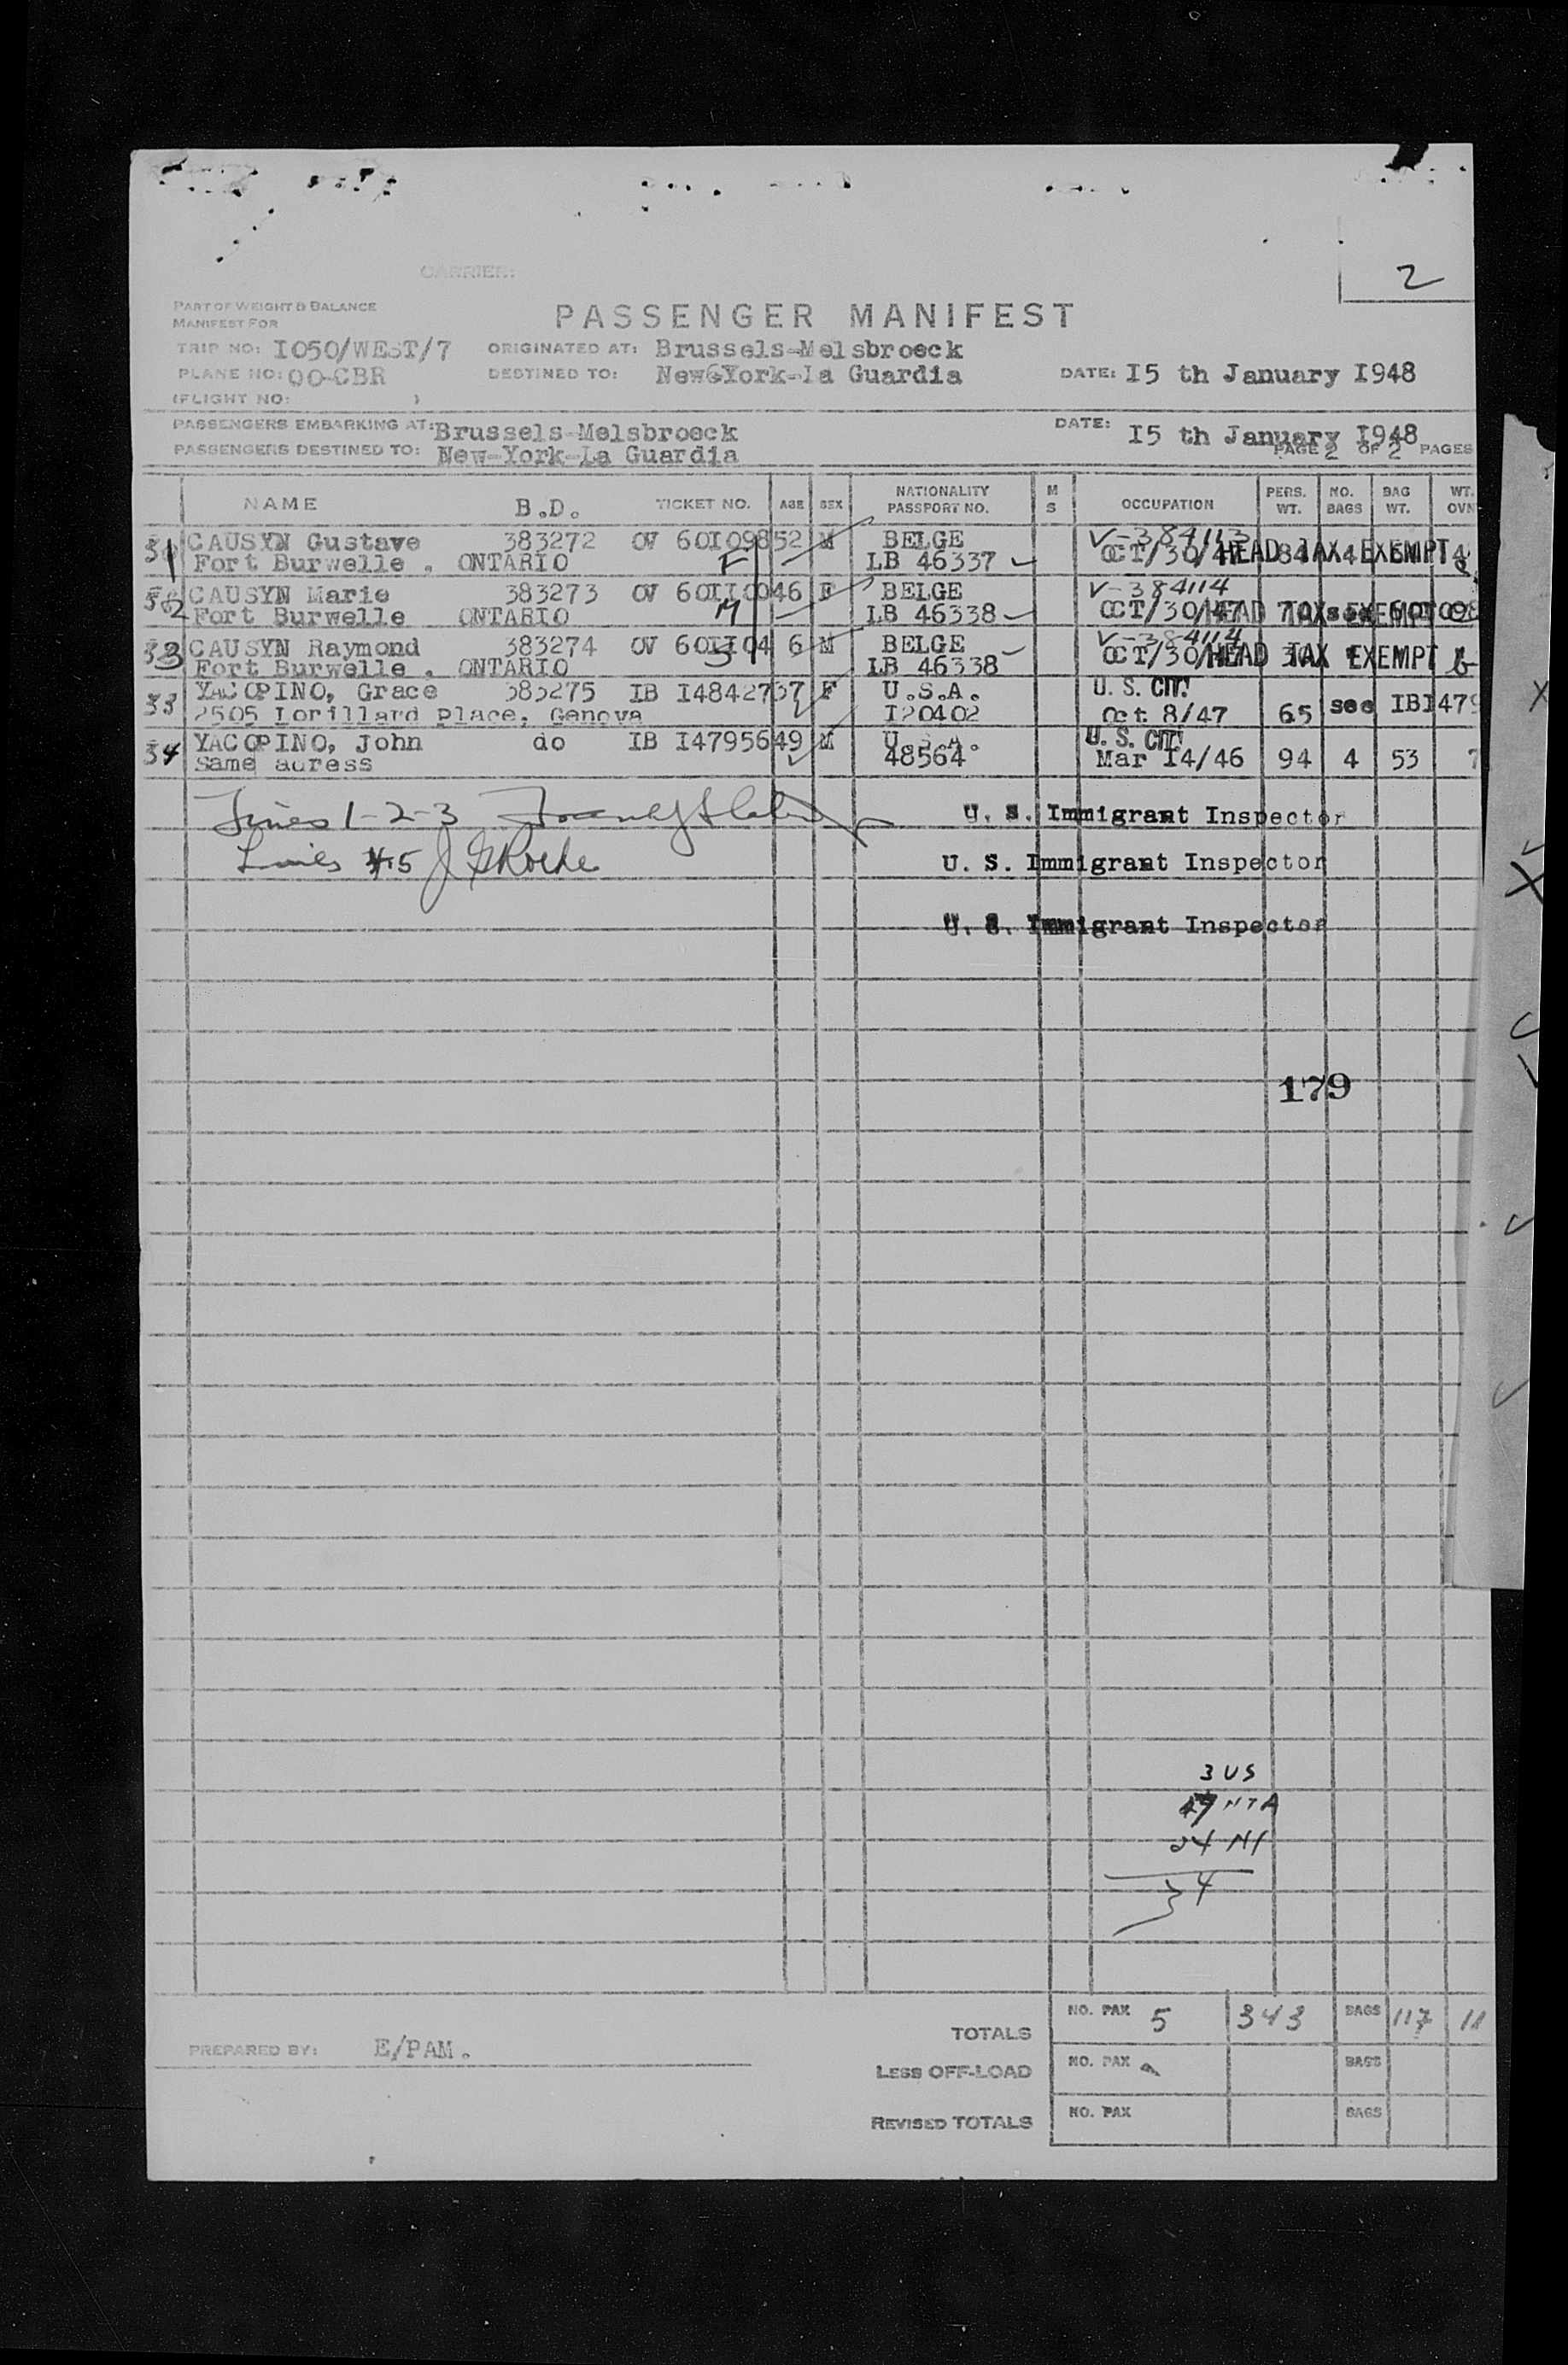 2
CARRIER:
PART OF WEIGHT & BALANCE
MANIFEST FOR
PASSENGER MANIFEST
TRIP NO: I050/WEST/7 ORIGINATED AT: Brussels-Melsbroeck
PLANE NO: OO-CBR DESTINED TO: New York-La Guardia DATE: I5 th January I948
(FLIGHT NO: )
PASSENGERS EMBARKING AT: Brussels-Melsbroeck DATE: I5 th January I948
PASSENGERS DESTINED TO: New-York-La Guardia PAGE 2 OF 2 PAGES
NAME B.D. TICKET NO. AGE SEX NATIONALITY PASSPORT NO. M S OCCUPATION PERS. WT. NO. BAGS BAG WT. WT. OVN
1 CAUSYN Gustave 383272 OV 60I098 52 M BELGE V-384113
Fort Burwelle . ONTARIO F LB 46337 OCT/30/47 HEAD TAX EXEMPT 84 4
2 CAUSYN Marie 383273 OV 60II00 46 F BELGE V-384114
Fort Burwelle ONTARIO M LB 46338 OCT/30/47 HEAD TAX EXEMPT 70 see
3 CAUSYN Raymond 383274 OV 60II04 6 M BELGE V-384114
Fort Burwelle . ONTARIO S LB 46338 OCT/30/47 HEAD TAX EXEMPT
33 YACOPINO, Grace 383275 IB I48427 37 F U.S.A. U. S. CIT!
2505 Lorillard Place, Genova I20402 Oct 8/47 65 see IBI479
34 YACOPINO, John do IB I47956 49 M U.S.A. U. S. CIT!
same adress 48564 Mar I4/46 94 4 53 7
Lines 1-2-3 U. S. Immigrant Inspector
Lines 4+5 U. S. Immigrant Inspector
U. S. Immigrant Inspector
179
3 US
NTA
24 NI
34
TOTALS NO. PAX 5 343 BAGS 117 11
PREPARED BY: E/PAM.
LESS OFF-LOAD NO. PAX BAGS
REVISED TOTALS NO. PAX BAGS